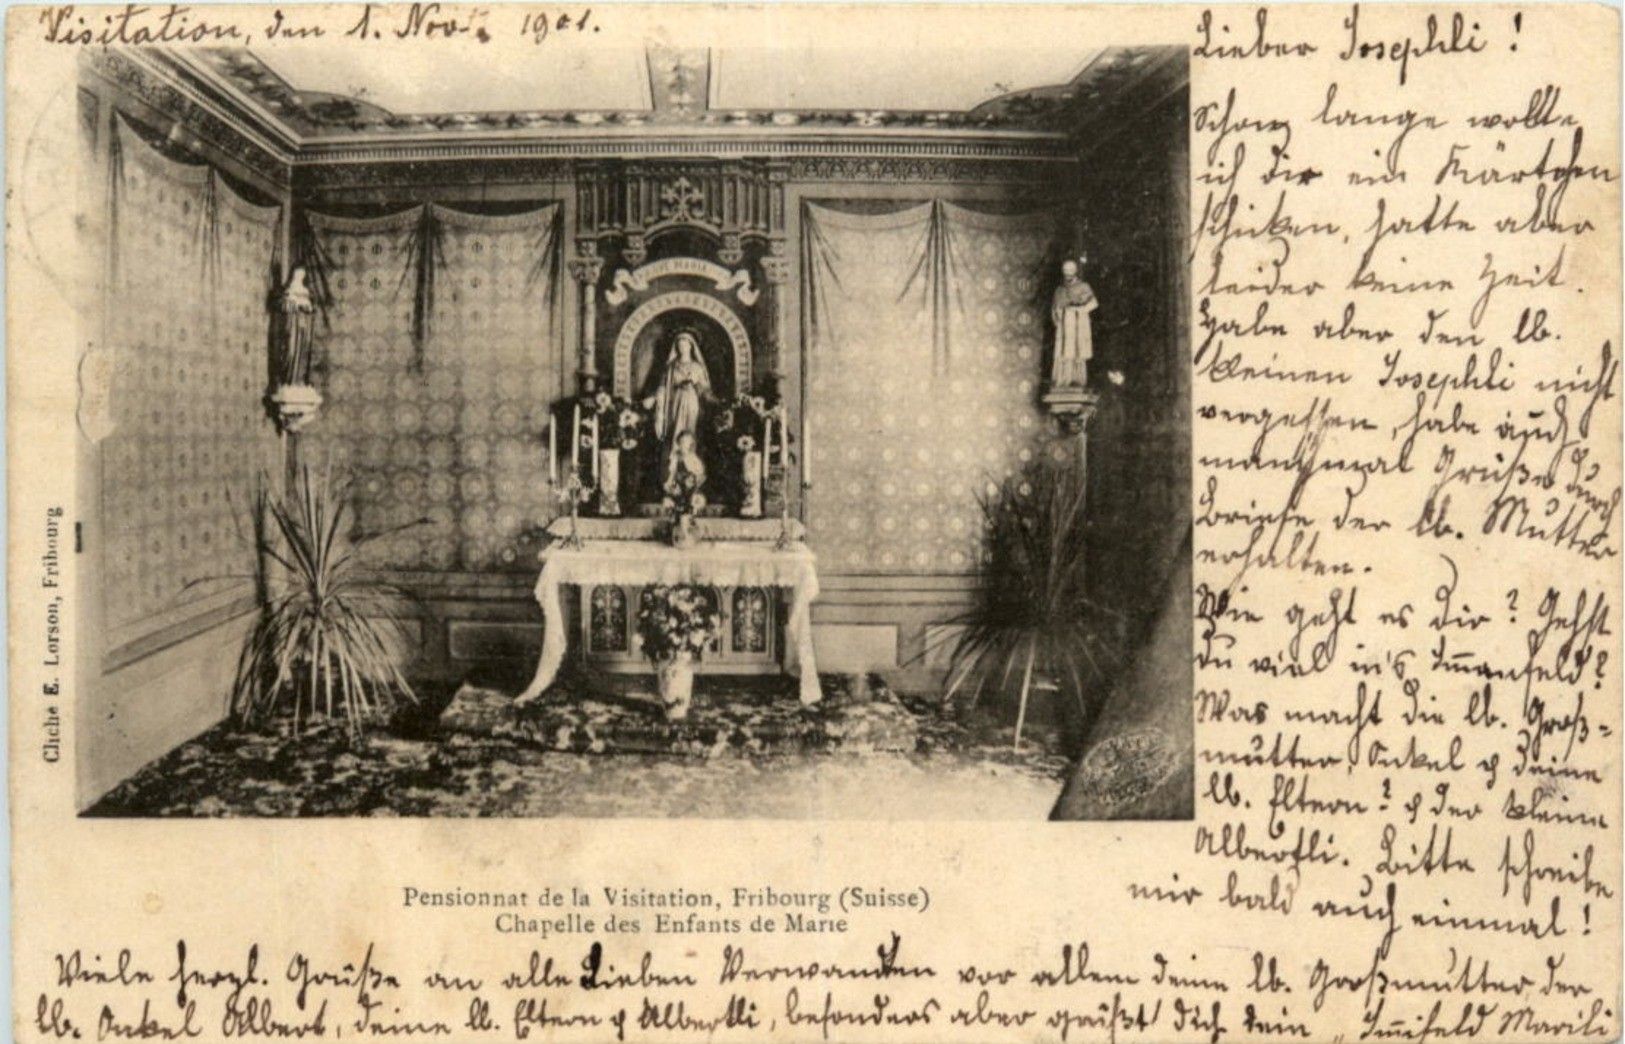 Visitation, den 1. Nov. 1901.
Lieber Josephli!
Schon lange wollte
ich dir ein Kärtchen
schicken, hatte aber
leider keine Zeit.
Habe aber den lb.
kleinen Josephli nicht
vergessen, habe auch
manchmal Grüße durch
Briefe der lb. Mutter
erhalten.
Wie geht es Dir? Gehst
du viel in's Immenfeld?
Was macht die lb. Groß-
mutter, Onkel & deine
lb. Eltern? & der kleine
Albertli. Bitte schreibe
mir bald auch einmal!
AVE MARIA
Cliché E. Lorson, Fribourg
Pensionnat de la Visitation, Fribourg (Suisse)
Chapelle des Enfants de Marie
Viele herzl. Grüße an alle Lieben Verwandten vor allem deine lb. Großmutter, der
lb. Onkel Albert, deine lb. Eltern & Albertli, besonders aber grüßt dich dein „Immifeld Marili